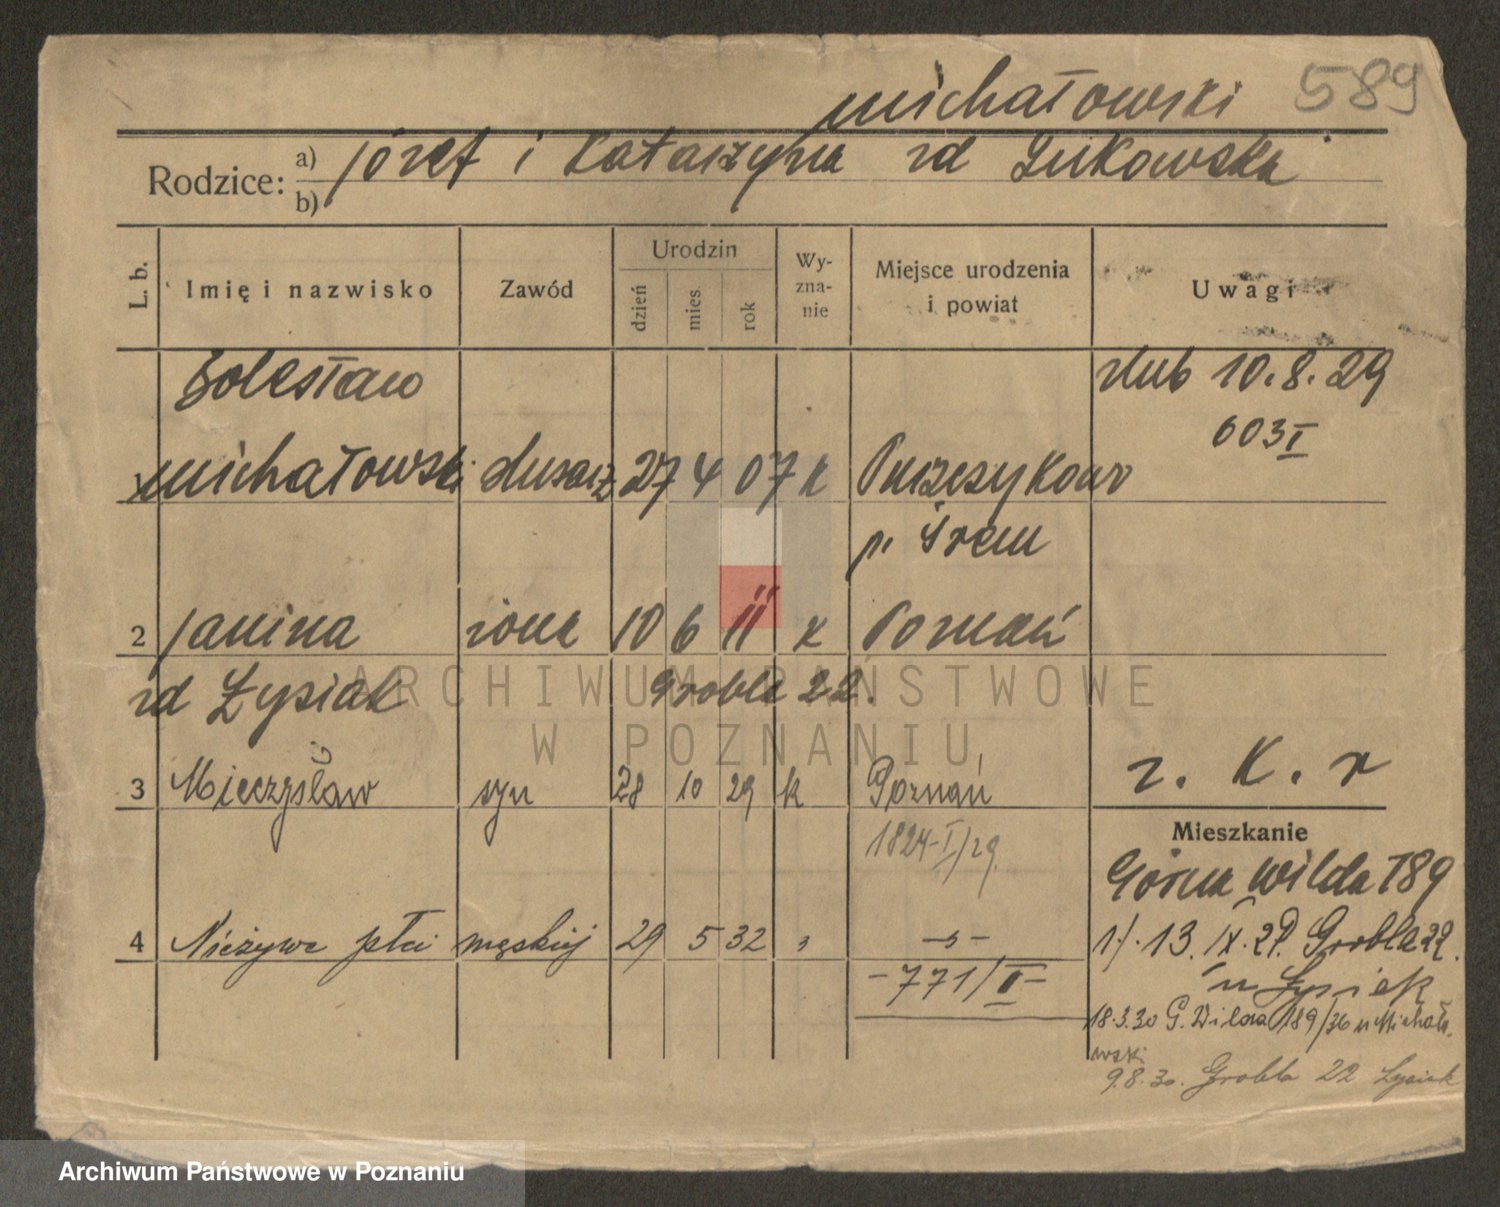 589
Michałowski
Rodzice: a) Józef i Katarzyna rd Żukowska
b)
L. b.
Imię i nazwisko
Zawód
Urodzin
dzień
mies.
rok
Wy-
zna-
nie
Miejsce urodzenia
i powiat
Uwagi
Bolesław ślub 10.8.29
603 I
1 Michałowski ślusarz 27 4 07 k
p. Śrem
2 Janina żona 10 6 11 k Poznań
rd Łysiak Grobla 22.
3 Mieczysław syn 28 10 29 k Poznań
r. K. r
1824-I/29.
Mieszkanie
Górna Wilda 189
4 Nieżywe płci męskiej 29 5 32 " -"-
1/. 13. IX. 29. Grobla 22.
u Łysiak
-771/II-
18.3.30 G. Wilda 189/36 u Michało
wski
9.8.30. Grobla 22 Łysiak
ARCHIWUM PAŃSTWOWE
W POZNANIU
Archiwum Państwowe w Poznaniu